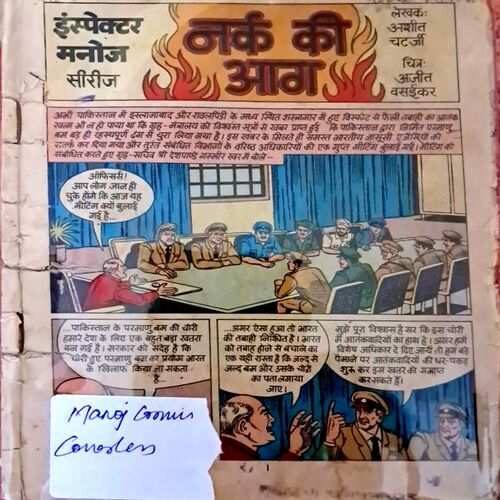 इंस्पेक्टर
मनोज
सीरीज
नर्क की
आग
लेखक:
अशीत
चटर्जी
चित्र:
अजीत
वसईकर
अभी पाकिस्तान में इस्लामाबाद और रावलपिंडी के मध्य स्थित शस्त्रागार में हुए विस्फोट से फैली तबाही का आतंक
खत्म भी न हो पाया था कि गृह-मंत्रालय को विश्वस्त सूत्रों से खबर प्राप्त हुई कि पाकिस्तान द्वारा निर्मित परमाणु
बम बड़े ही रहस्यपूर्ण ढंग से चुरा लिया गया है। इस खबर के मिलते ही समस्त भारतीय जासूसी एजेंसियों को
सतर्क कर दिया गया और तुरंत संबंधित विभागों के वरिष्ठ अधिकारियों की एक गुप्त मीटिंग बुलाई गई। मीटिंग को
संबोधित करते हुए गृह-सचिव श्री देशपाण्डे गम्भीर स्वर में बोले-
ऑफिसर्स!
आप लोग जान ही
चुके होंगे कि आज यह
मीटिंग क्यों बुलाई
गई है...
...पाकिस्तान के परमाणु बम की चोरी
हमारे देश के लिए एक बहुत बड़ा खतरा
बन गई है। सरकार को संदेह है कि
चोरी हुए परमाणु बम का प्रयोग भारत
के खिलाफ किया जा सकता
है...
...अगर ऐसा हुआ तो भारत
की तबाही निश्चित है। भारत
को तबाह होने से बचाने का
एक यही रास्ता है कि जल्द से
जल्द बम और उसके चोरों
का पता लगाया
जाए।
मुझे पूरा विश्वास है सर कि इस चोरी
में आतंकवादियों का हाथ है। अगर हमें
विशेष अधिकार दे दिए जायें तो हम बड़े
पैमाने पर आतंकवादियों की धर-पकड़
शुरू कर इस खतरे को समाप्त
कर सकते हैं।
Manoj Comics